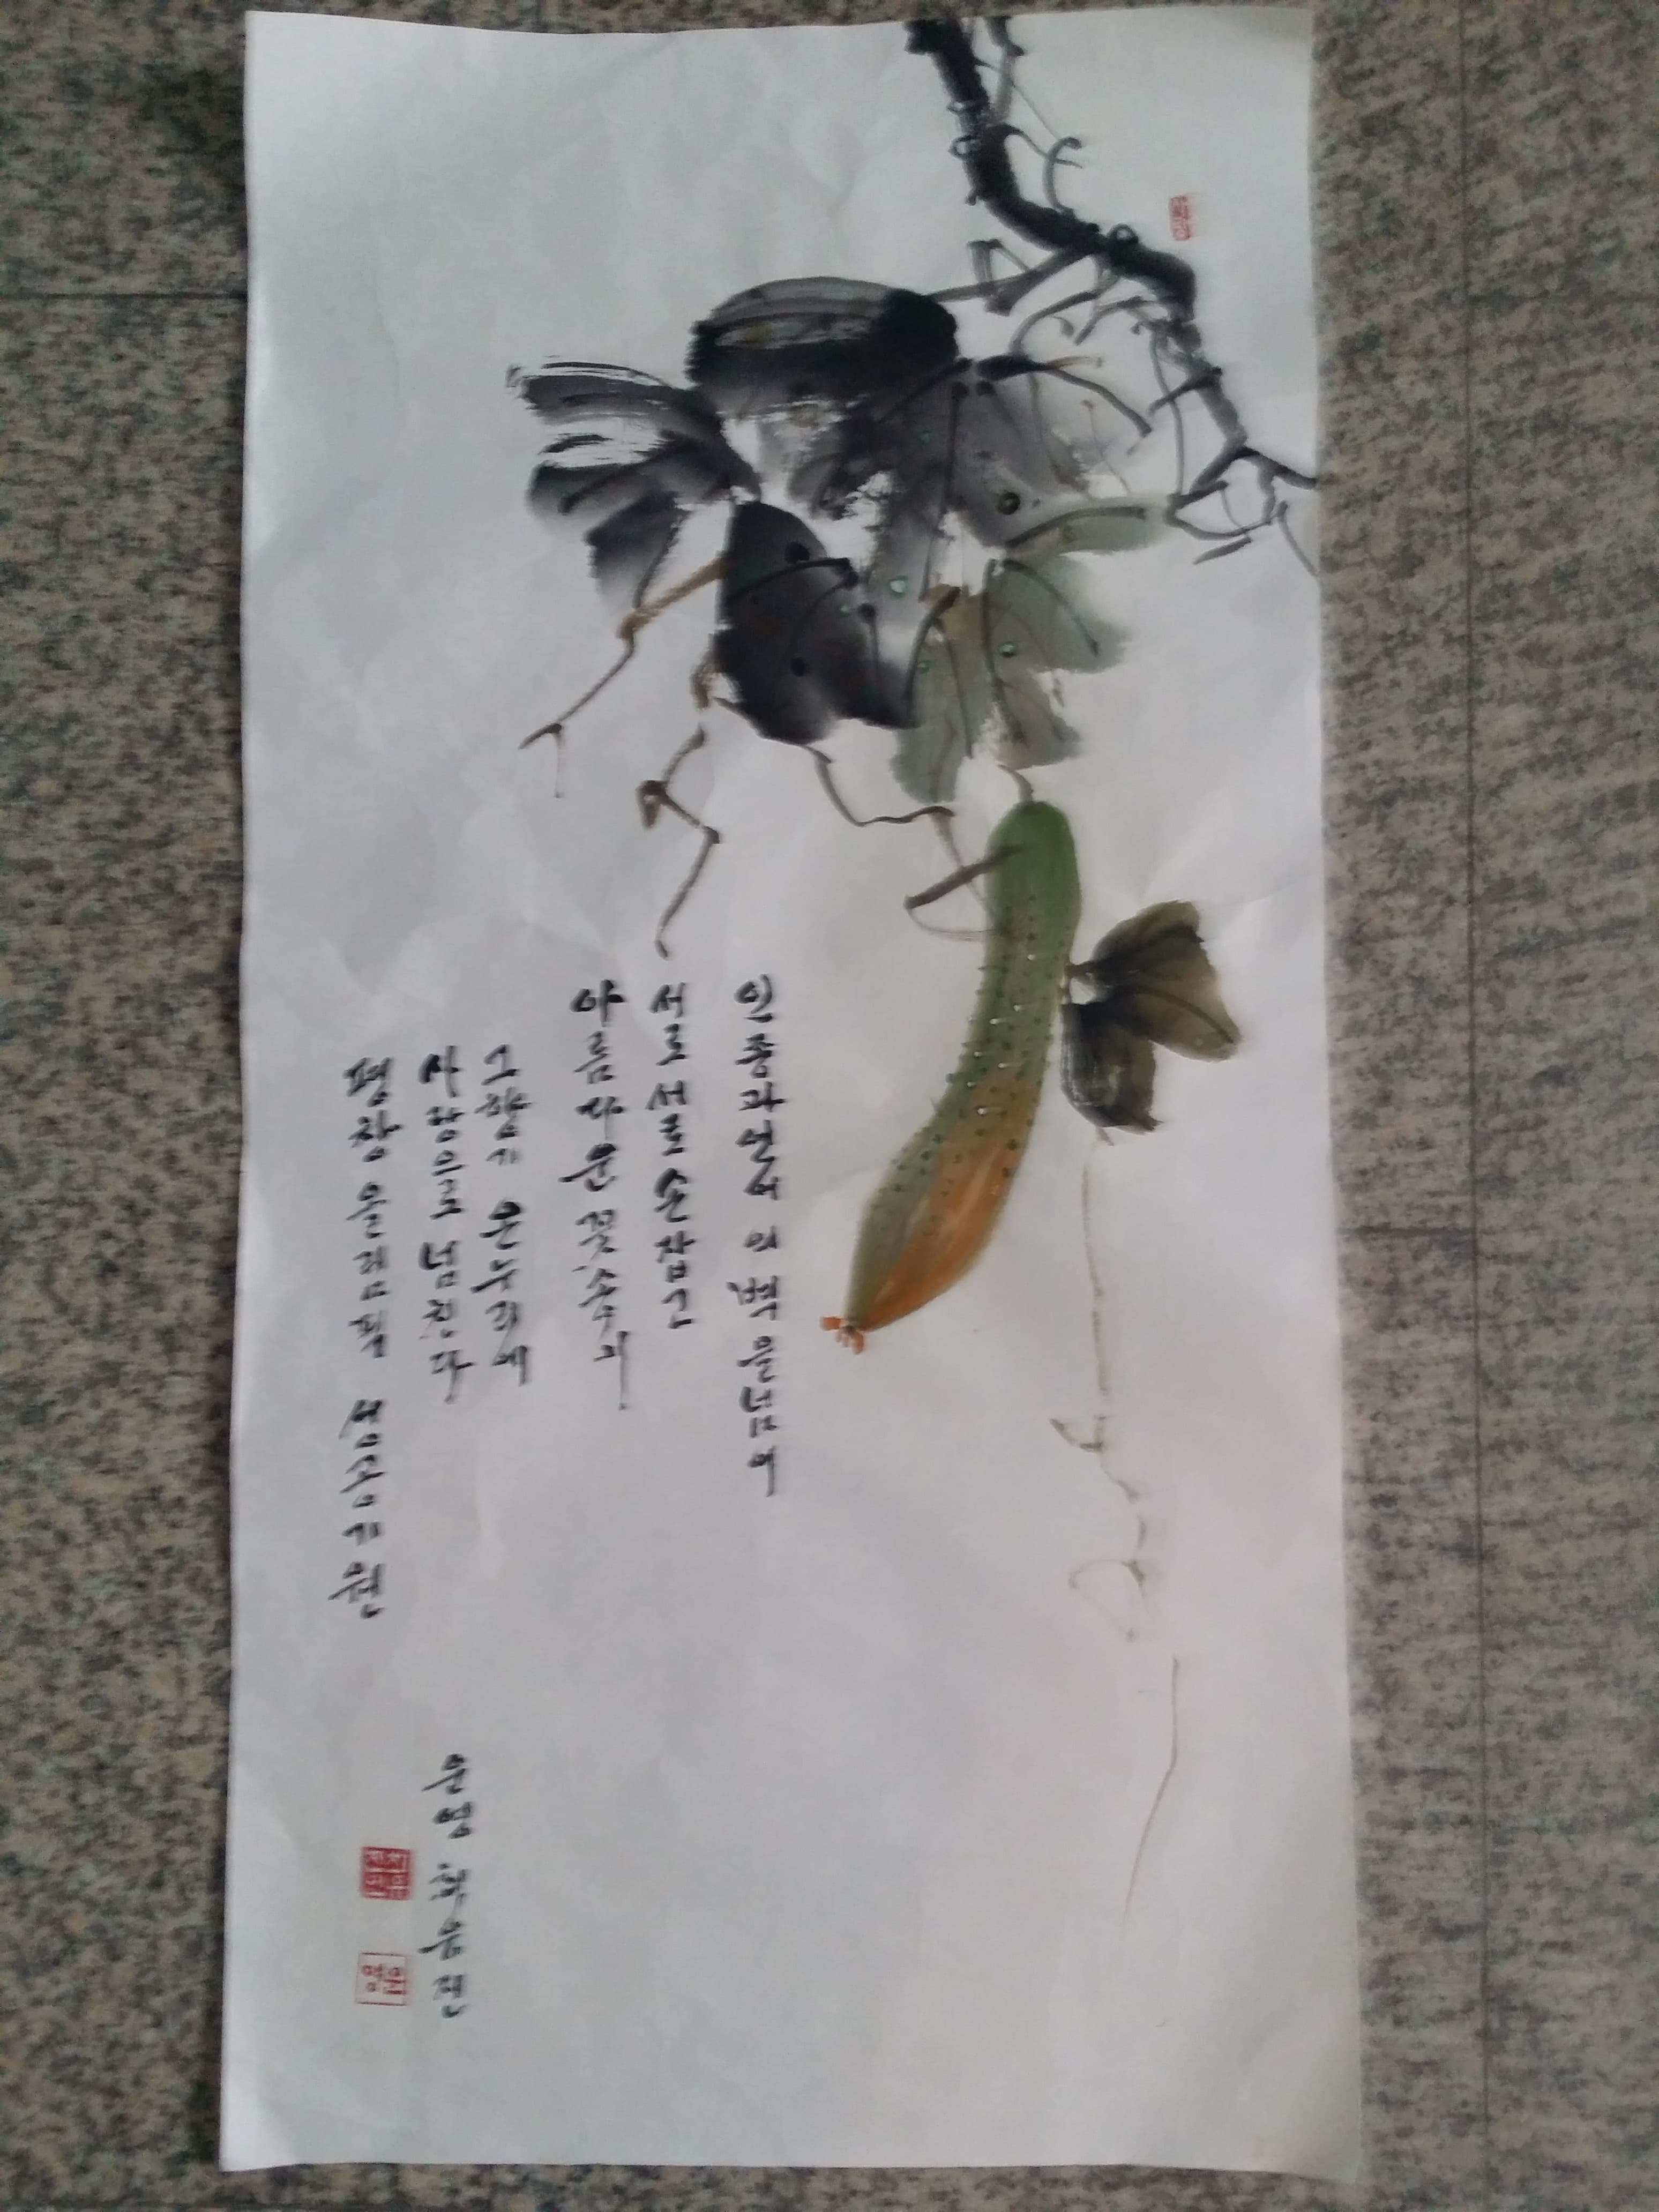 인종과 언어의 벽을 넘어
서로서로 손잡고
아름다운 꽃송이
그 향기 온누리에
사랑으로 넘친다
평창올림픽 성공기원
운영
운영